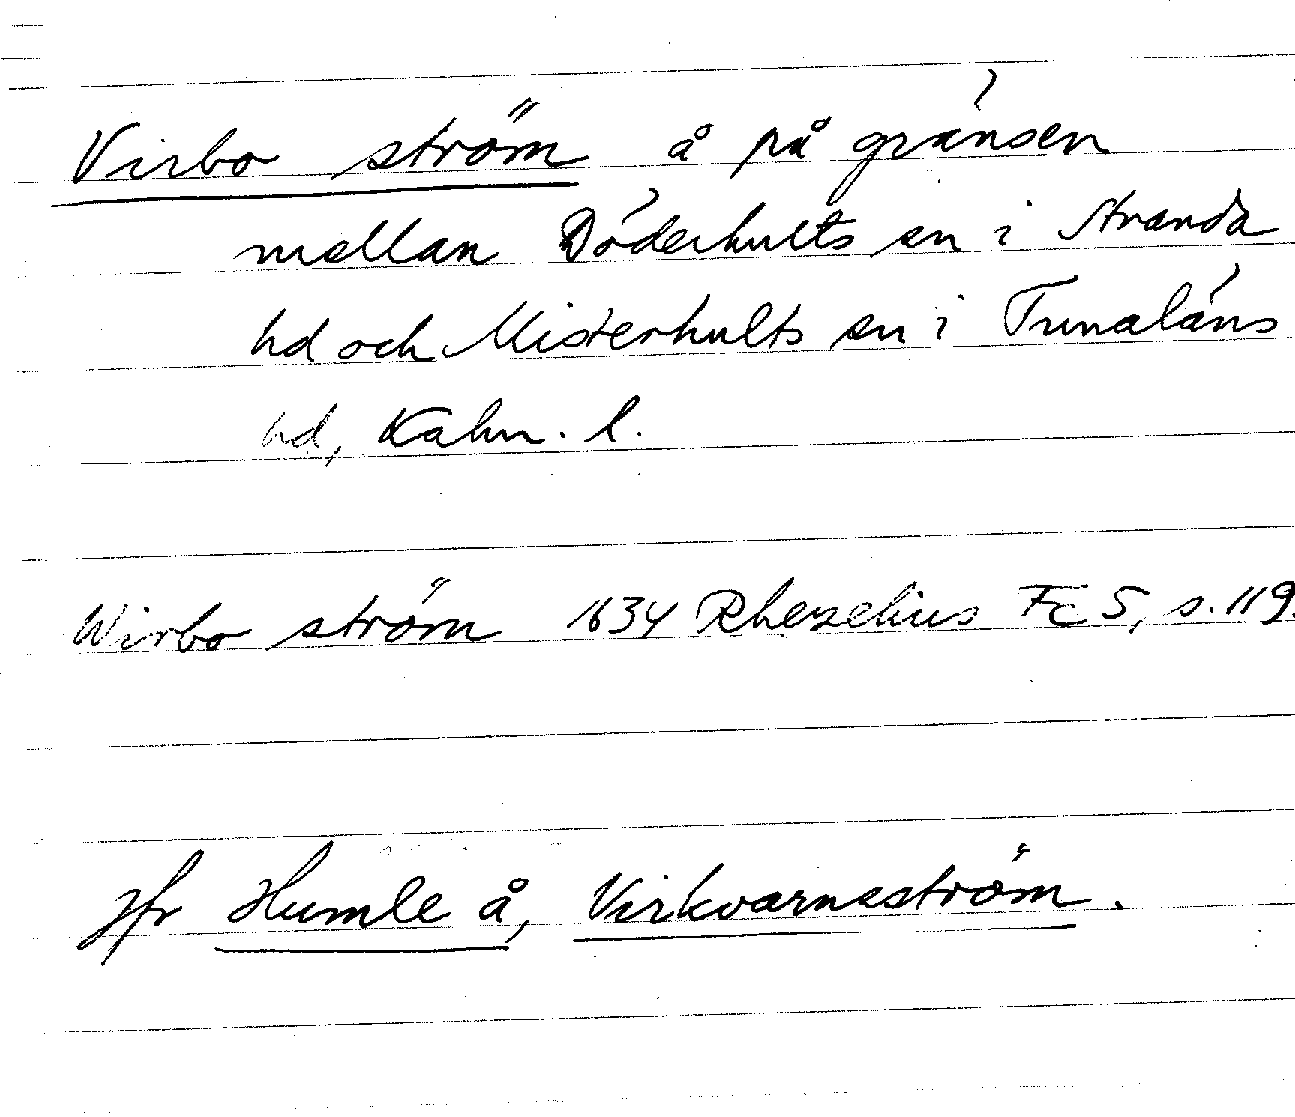 Virbo ström å på gränsen
mellan Döderhults sn i Stranda
hd och Misterhults sn i Tunaläns
hd, Kalm. l.
Wirbo ström 1634 Rhezelius Fc 5, s. 119.
Jfr Humle å, Virkvarnsström.